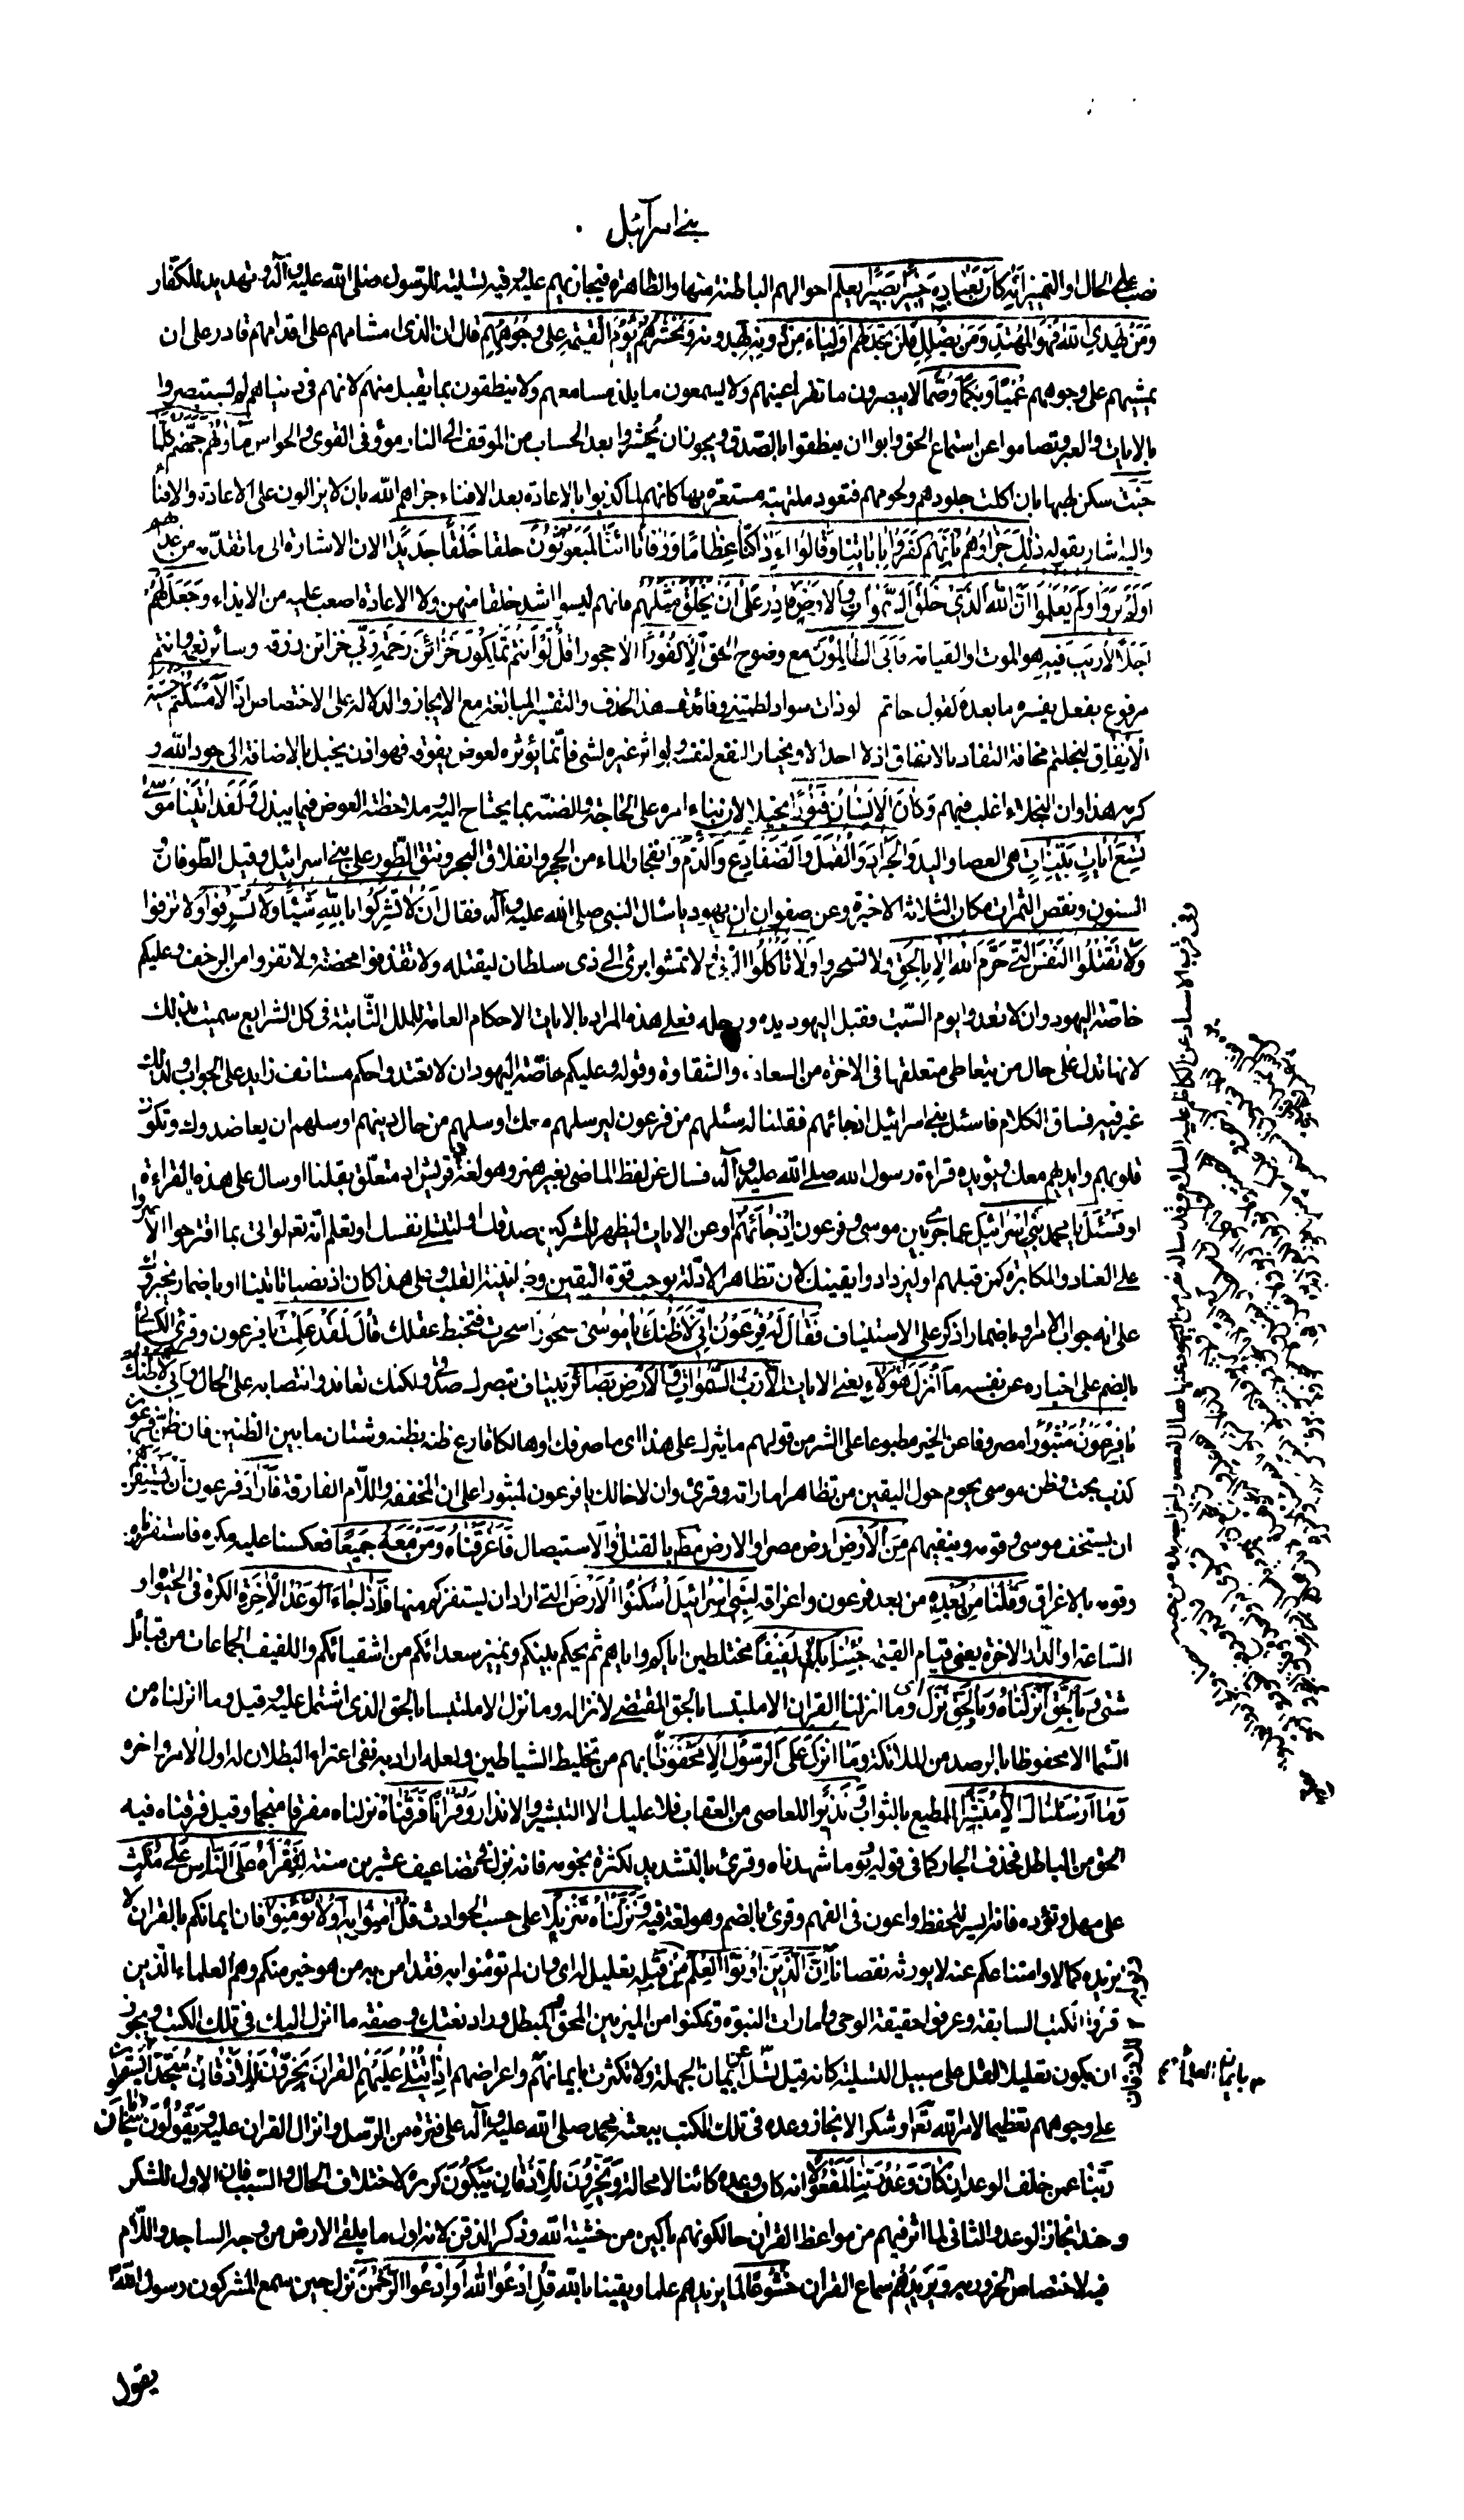 بنے اسرآئیل
نصب علی الحال او التمییز اِنَّهُ كَانَ بِعِبَادِهِ خَبِيرًا بَصِيرًا یعلم احوالهم الباطنة منها والظاهرة فیجازیهم علیه وفیه تسلیة للرسول صلی الله علیه وآله وتهدید للکفّار
وَمَنْ يَهْدِي اللهُ فَهُوَ الْمُهْتَدِ وَمَنْ يُضْلِلْ فَلَنْ تَجِدَ لَهُمْ أَوْلِيَاءَ مِنْ دُونِهِ یهدونه وَنَحْشُرُهُمْ يَوْمَ الْقِيٰمَةِ عَلىٰ وُجُوهِهِمْ قال ان الذی امشاهم علی اقدامهم قادر علی ان
یمشیهم علی وجوههم عُمْيًا وَبُكْمًا وَصُمًّا لا یبصرون ما تقر اعینهم ولا یسمعون ما یلذ مسامعهم ولا ینطقون بما یقبل منهم لانهم فی دنیاهم لم یستبصروا
بالایات والعبر وتصاموا عن استماع الحق وابوا ان ینطقوا بالصّدق ویجوز ان یُحشروا بعد الحساب من الموقف الی النار مؤوفی القوی والحواس مَأْوٰهُمْ جَهَنَّمُ كُلَّمَا
خَبَتْ سکن لهبها بان اکلت جلودهم ولحومهم فتعود ملتهبة مستعرّة بها کانهم لما کذبوا بالاعادة بعد الافناء جزاهم الله بان لا یزالون علی الاعادة والافناء
والیه اشار بقوله ذٰلِكَ جَزَاؤُهُمْ بِأَنَّهُمْ كَفَرُوا بِآيَاتِنَا وَقَالُوا ءَإِذَا كُنَّا عِظَامًا وَرُفَاتًا ائِنَّا لَمَبْعُوثُونَ خَلْقًا جَدِيدًا لان الاشارة الی ما تقدّم من عذابهم
اَوَلَمْ يَرَوْا اولم یعلموا اَنَّ اللهَ الَّذِي خَلَقَ السَّمٰوَاتِ وَالْأَرْضَ قَادِرٌ عَلىٰ اَنْ يَخْلُقَ مِثْلَهُمْ فانهم لیسوا اشد خلقا منهن ولا الاعادة اصعب علیه من الابداء وَجَعَلَ لَهُمْ
اَجَلًا لَا رَيْبَ فِيهِ هو الموت او القیامة فَاَبَى الظَّالِمُونَ مع وضوح الحق اِلَّا كُفُورًا الا جحودا قُلْ لَوْ اَنْتُمْ تَمْلِكُونَ خَزَائِنَ رَحْمَةِ رَبِّي خزائن رزقه وسائر نعمه وانتم
مرفوع بفعل یفسره ما بعده کقول حاتم لو ذات سوار لطمتنی وفائدة هذا الحذف والتفسیر المبالغة مع الایجاز والدلالة علی الاختصاص اِذًا لَاَمْسَكْتُمْ خَشْيَةَ
الْاِنْفَاقِ لبخلتم مخافة النفاد بالانفاق اذ لا احد الا ویختار النفع لنفسه ولو اثر غیره لشی فانّما یؤثره لعوض یفوقه فهو اذن بخیل بالاضافة الی جود الله و
کرمه هذا وان البخلاء اغلب فیهم وَكَانَ الْاِنْسَانُ قَتُورًا بخیلا لان بناء امره علی الحاجة والضنّة بما یحتاج الیه وملاحظة العوض فیما یبذل وَلَقَدْ اٰتَيْنَا مُوسٰى
تِسْعَ اٰيَاتٍ بَيِّنَاتٍ هی العصا والید والجراد والقمّل والضفادع والدم وانفجار الماء من الحجر وانفلاق البحر ونتق الطّور علی بنی اسرائیل وقیل الطّوفان و
السنون ونقص الثمرات مکان الثلاثة الاخیرة وعن صفوان ان یهودیا سال النبی صلی الله علیه وآله فقال ان لا تشرکوا بالله شیئا ولا تسرقوا ولا تزنوا
ولا تقتلوا النفس التی حرّم الله الا بالحق ولا تسحروا ولا تاکلوا الربا ولا تمشوا ببرئ الی ذی سلطان لیقتله ولا تقذفوا محصنة ولا تفروا من الزحف وعلیکم
خاصّة الیهود وان لا تعدوا یوم السّبت فقبل الیهود یده ورجله فعلی هذه المراد بالایات الاحکام العامة للملل الثّابتة فی کل الشرایع سمیت بذلک
لانها تدل علی حال من یتعاطی متعلقها فی الاخرة من السعادة والشقاوة وقوله وعلیکم خاصّة الیهود ان لا تعتدوا حکم مستانف زاید علی الجواب ولذلک
غیر فیه سیاق الکلام فاسئل بنی اسرائیل اذ جائهم فقلنا له سئلهم من فرعون لیرسلهم معک او سلهم من حال دینهم او سلهم ان یعاضدوک وتکون
قلوبهم وایدیهم معک ویؤیده قراءة رسول الله صلی الله علیه وآله فسال عن لفظ الماضی بغیر همز وهو لغة قریش اذ متعلّق بقلنا او سال علی هذه القراءة
او فَسْئَلْ یا محمد بَنِي اِسْرَائِيلَ عما جری بین موسی وفرعون اِذْ جَاءَهُمْ او عن الایات لیظهر للمشرکین صدقک او لتتسلی نفسک او تعلم انّه تع لو اتی بما اقترحوا لاصروا
علی العناد والمکابرة کمن قبلهم او لیزداد یقینک لان تظاهر الادلّة یوجب قوة الیقین وطمانینة القلب وعلی هذا کان اذ نصبا باتینا او باضمار یخبروک
علی انه جواب الامر او باضمار اذکر علی الاستیناف فَقَالَ لَهُ فِرْعَوْنُ اِنِّي لَاَظُنُّكَ يَا مُوسىٰ مَسْحُورًا سحرت فتخبط عقلک قَالَ لَقَدْ عَلِمْتَ یا فرعون وقرئ الکسائی
بالضم علی اخباره عن نفسه مَا اَنْزَلَ هٰؤُلَاءِ یعنی الایات اِلَّا رَبُّ السَّمٰوَاتِ وَالْاَرْضِ بَصَائِرَ بینات تبصرک صدقی ولکنک تعاند وانتصابه علی الحال وَاِنِّي لَاَظُنُّكَ
يَا فِرْعَوْنُ مَثْبُورًا مصروفا عن الخیر مطبوعا علی الشر من قولهم ما ثبرک علی هذا ای ما صرفک او هالکا قارع ظنه بظنه وشتان ما بین الظنین فان ظن فرعون
کذب بحت وظن موسی یحوم حول الیقین من تظاهر اماراته وقرئ وان لاخالک یا فرعون لمثبورا علی ان المخففة واللام الفارقة فَاَرَادَ فرعون اَنْ يَسْتَفِزَّهُمْ
ان یستخف موسی وقومه وینفیهم مِنَ الْاَرْضِ ارض مصر او الارض مطلقا بالقتل والاستیصال فَاَغْرَقْنَاهُ وَمَنْ مَعَهُ جَمِيعًا فعکسنا علیه مکره فاستفززناه
وقومه بالاغراق وَقُلْنَا مِنْ بَعْدِهِ من بعد فرعون واغراقه لِبَنِي اِسْرَائِيلَ اسْكُنُوا الْاَرْضَ التی اراد ان یستفزکم منها فَاِذَا جَاءَ وَعْدُ الْاٰخِرَةِ الکرة او الحیوة او
السّاعة او الدار الاخرة یعنی قیام القیمة جِئْنَا بِكُمْ لَفِيفًا مختلطین ایاکم وایاهم ثم یحکم بینکم ویمیز سعدائکم من اشقیائکم واللفیف الجماعات من قبائل
شتی وَبِالْحَقِّ اَنْزَلْنَاهُ وَبِالْحَقِّ نَزَلَ ای وما انزلنا القران الا ملتبسا بالحق المقتضی لانزاله وما نزل الا ملتبسا بالحق الذی اشتمل علیه وقیل وما انزلناه من
السّما الا محفوظا بالرصد من الملائکة وما انزل علی الرسول الا محفوظا بهم من تخلیط الشیاطین ولعله اراد به نفی اعتراء البطلان له اول الامر واخره
وَمَا اَرْسَلْنَاكَ اِلَّا مُبَشِّرًا للمطیع بالثواب وَنَذِيرًا للعاصی من العقاب فلا علیک الا التبشیر والانذار وَقُرْاٰنًا فَرَقْنَاهُ نزلناه مفرقا منجما وقیل فرقنا فیه
الحق من الباطل فحذف الجار کما فی قوله ویوما شهدناه وقرئ بالتشدید لکثرة نجومه فانه نزل فی تضاعیف عشرین سنة لِتَقْرَاَهُ عَلَى النَّاسِ عَلىٰ مُكْثٍ
علی مهل وتؤدة فانه ایسر للحفظ واعون فی الفهم وقرئ بالضم وهو لغة فیه وَنَزَّلْنَاهُ تَنْزِيلًا علی حسب الحوادث قُلْ اٰمِنُوا بِهِ اَوْ لَا تُؤْمِنُوا فان ایمانکم بالقران لا
یزیده کمالا وامتناعکم عنه لا یورثه نقصانا اِنَّ الَّذِينَ اُوتُوا الْعِلْمَ مِنْ قَبْلِهِ تعلیل له ای ان لم تؤمنوا به فقد امن به من هو خیر منکم وهم العلماء الذین
قرؤا الکتب السابقة وعرفوا حقیقة الوحی وامارات النبوة وتمکنوا من المیز بین المحق والمبطل وراوا نعتک وصفة ما انزل الیک فی تلک الکتب ویجوز
ان یکون تعلیلا لقل علی سبیل التسلیة کانه قیل تسّل بایمان العلماء عن ایمان الجهلة ولا تکترث بایمانهم واعراضهم اِذَا يُتْلىٰ عَلَيْهِمْ القران يَخِرُّونَ لِلْاَذْقَانِ سُجَّدًا یسقطون
علی وجوههم تعظیما لامر الله تع او شکرا لانجاز وعده فی تلک الکتب ببعثة محمد صلی الله علیه وآله علی فترة من الرسل وانزال القران علیه وَيَقُولُونَ سُبْحَانَ
رَبِّنَا عن خلف الوعد اِنْ كَانَ وَعْدُ رَبِّنَا لَمَفْعُولًا انه کان وعده کائنا لا محالة وَيَخِرُّونَ لِلْاَذْقَانِ يَبْكُونَ کرره لاختلاف الحال والسبب فان الاول للشکر
عند انجاز الوعد والثانی لما اثر فیهم من مواعظ القران حالکونهم باکین من خشیة الله وذکر الذقن لانه اول ما یلقی الارض من وجه الساجد واللام
فیه لاختصاص الخرور به وَيَزِيدُهُمْ سماع القران خُشُوعًا لما یزیدهم علما ویقینا بالله قُلِ ادْعُوا اللهَ اَوِ ادْعُوا الرَّحْمٰنَ نزل حین سمع المشرکون رسول الله
یقول